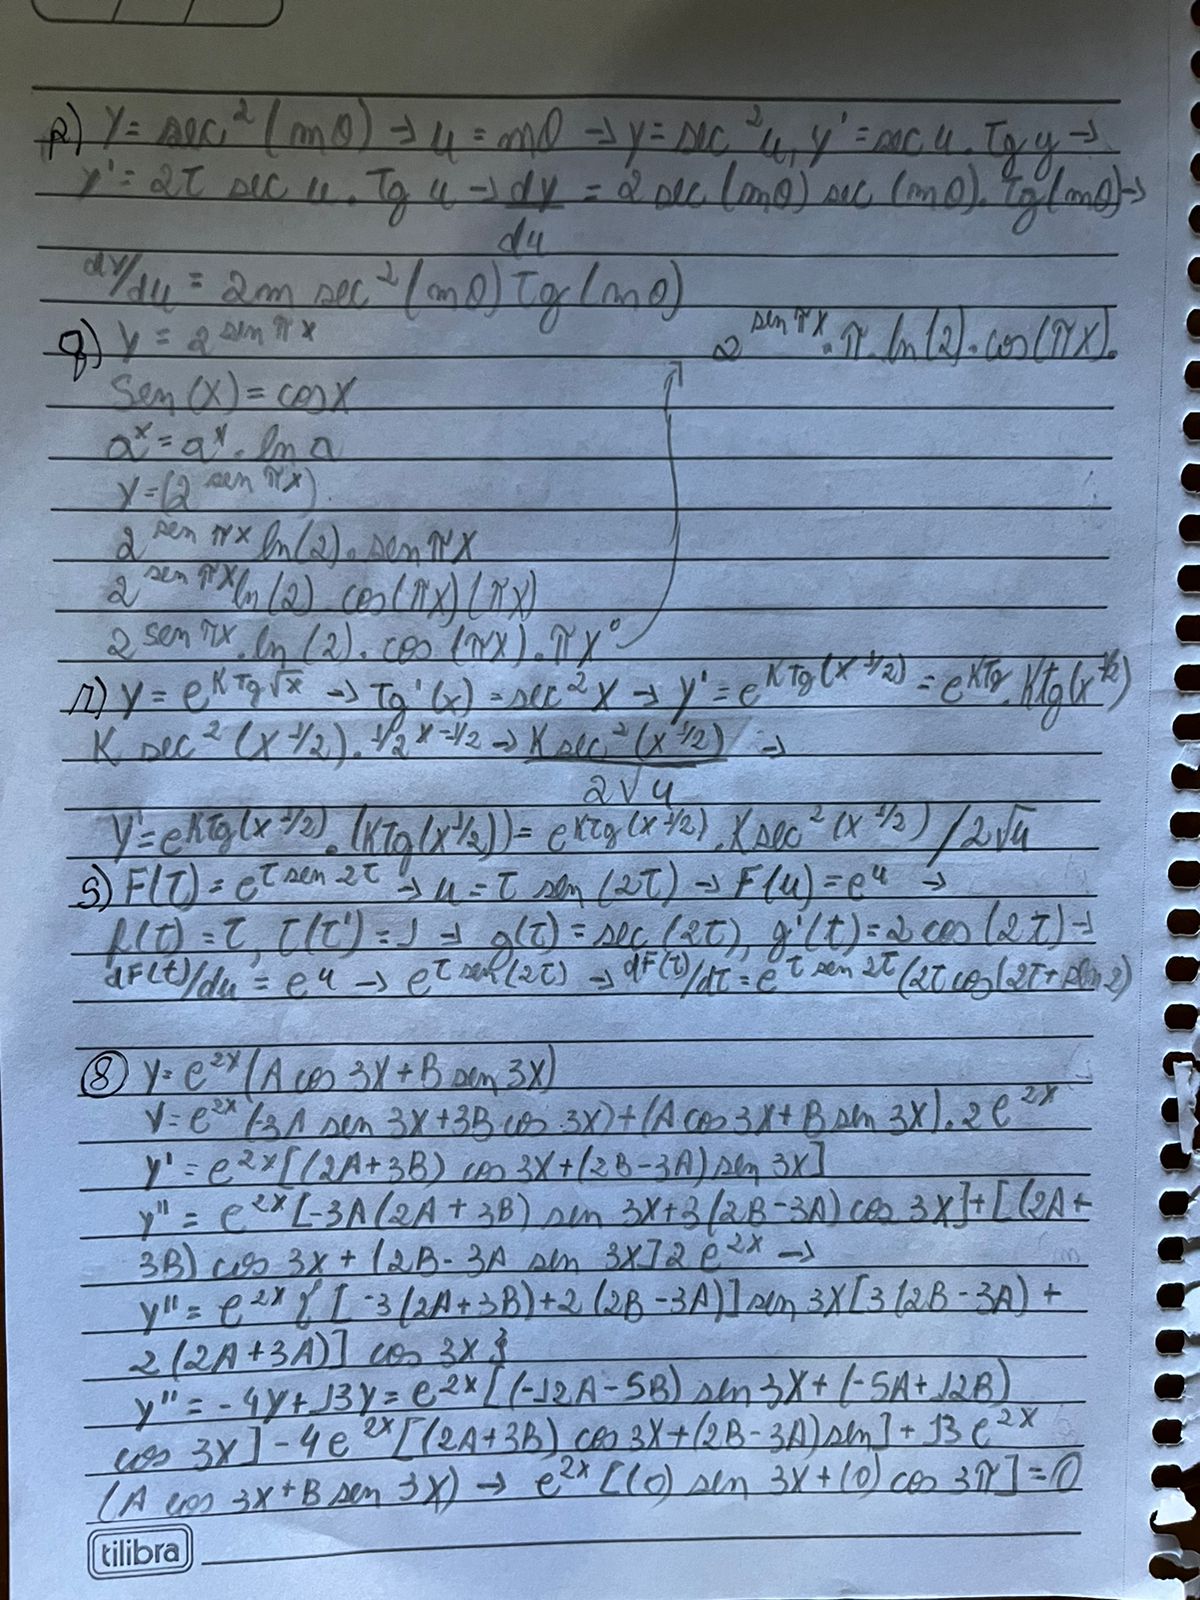 p) Y = sec² (mθ) → u = mθ → y = sec² u, y' = sec u . Tg y →
Y' = 2τ sec u . Tg u → dy/du = 2 sec (mθ) sec (mθ). Tg(mθ) →
dy/du = 2m sec² (mθ) Tg (mθ)
q) Y = 2^sen πx
2^sen πx . π . ln(2) . cos(πx).
Sen (x) = cos x
a^x = a^x . ln a
Y = (2^sen πx)
2^sen πx ln(2) . sen πx
2^sen πx ln(2) cos(πx) (πx)
2^sen πx . ln(2) . cos (πx) . πx°
r) Y = e^K Tg √x → Tg'(x) = sec² x → y' = e^KTg(x^1/2) = e^KTg . Ktg(x^1/2)
K sec² (x^1/2) . 1/2 x^-1/2 → K sec² (x^1/2) / 2√u →
Y' = e^KTg(x^1/2) . (KTg(x^1/2)) = e^KTg(x^1/2) . K sec² (x^1/2) / 2√u
S) F(τ) = e^τ sen 2τ → u = τ sen (2τ) → F(u) = e^u →
f(t) = τ, τ(τ') = 1 → g(τ) = sec (2τ), g'(t) = 2 cos (2τ) →
dF(t)/du = e^u → e^τ sen (2τ) → dF(τ)/dτ = e^τ sen 2τ (2τ cos(2τ + 2)
8 Y = e^2x (A cos 3x + B sen 3x)
Y = e^2x (-3A sen 3x + 3B cos 3x) + (A cos 3x + B sen 3x) . 2 e^2x
y' = e^2x [(2A + 3B) cos 3x + (2B - 3A) sen 3x]
y'' = e^2x [-3A (2A + 3B) sen 3x + 3 (2B - 3A) cos 3x] + [(2A +
3B) cos 3x + (2B - 3A sen 3x] 2 e^2x →
y'' = e^2x { [-3 (2A + 3B) + 2 (2B - 3A)] sen 3x [3 (2B - 3A) +
2 (2A + 3A)] cos 3x }
y'' = -4y + 13y = e^2x [(-12A - 5B) sen 3x + (-5A + 12B)
cos 3x] - 4e^2x [(2A + 3B) cos 3x + (2B - 3A) sen] + 13 e^2x
(A cos 3x + B sen 3x) → e^2x [(0) sen 3x + (0) cos 3π] = 0
tilibra